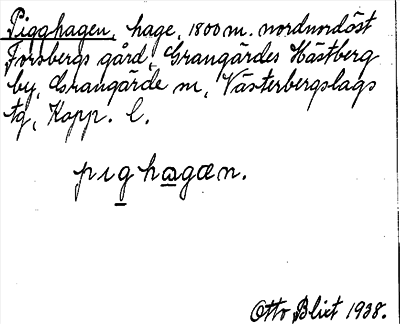 Pigghagen, hage, 1800 m. nordnordöst
Forsbergs gård, Grangärdes Hästberg
by, Grangärde sn, Västerbergslags
tg, Kopp. l.
pıg hagæn.
Otto Blixt 1938.